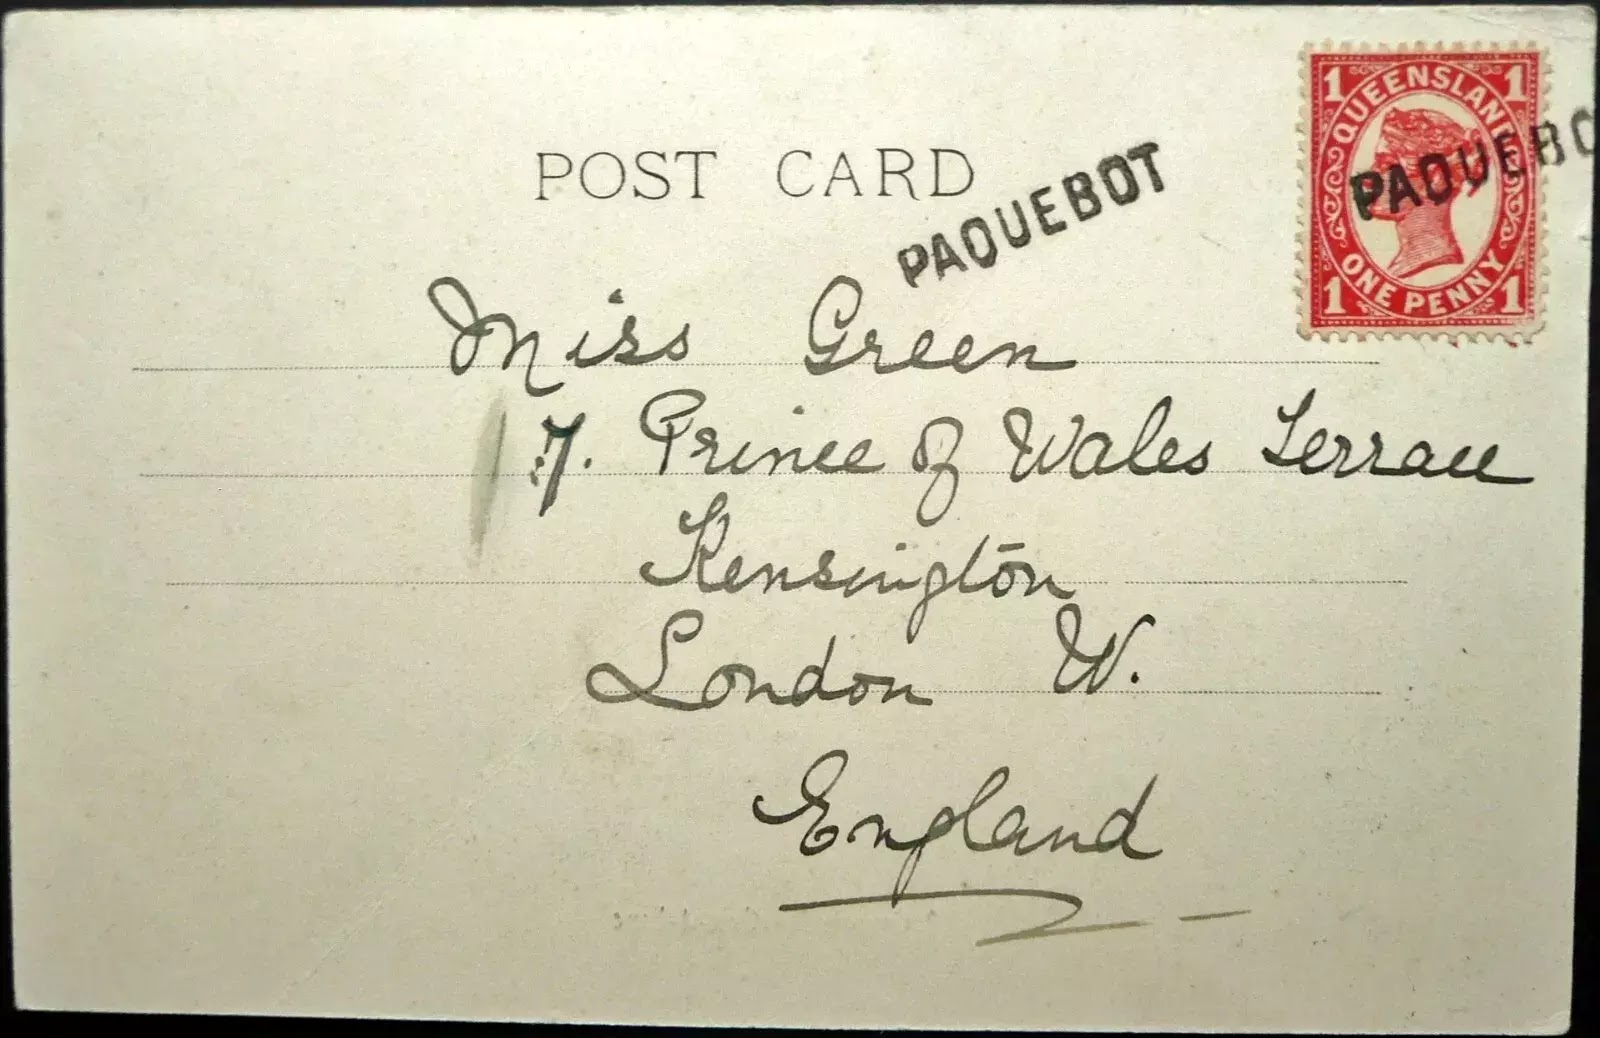 1 1
QUEENSLAND
PAQUEBO
ONE PENNY
1 1
POST CARD
PAQUEBOT
Miss Green
17. Prince of Wales Terrace
Kensington
London W.
England